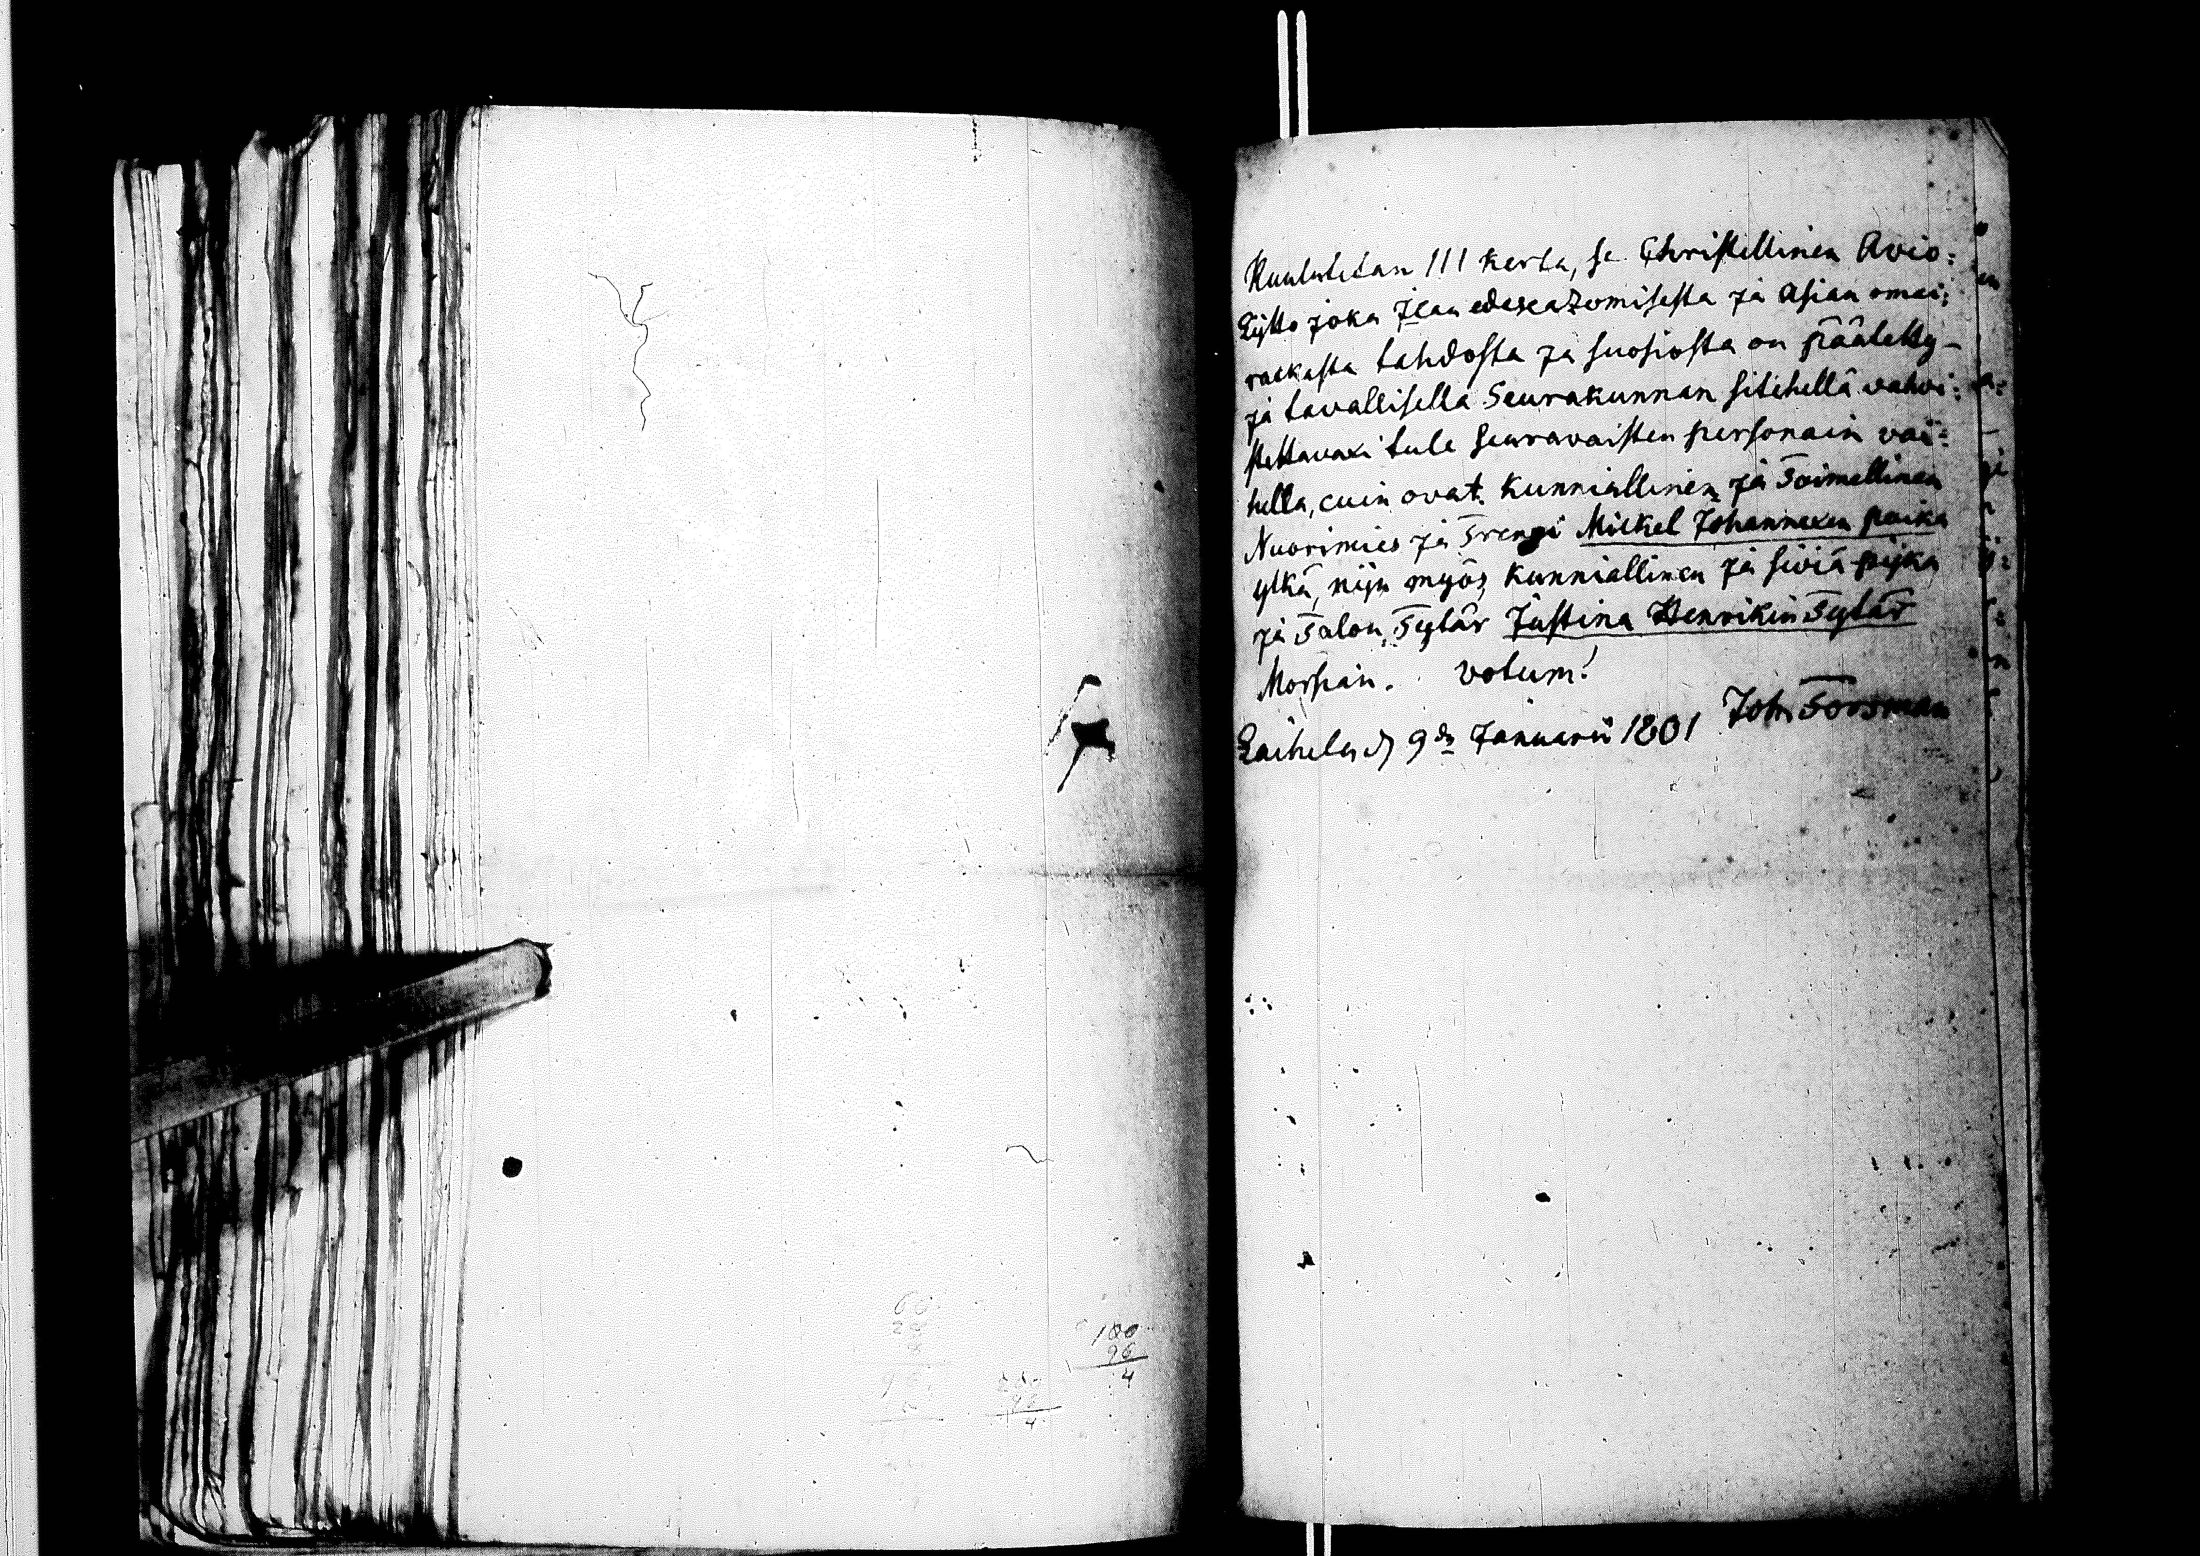 100
96
4
4
Kuulutetan III kerta, se Christellinen Avio:
Lijtto joka Jlan edesca Zomisesta ja Asian omai:
rackasta tahdosta ja suosiosta on päätetty-
ja tavallisella Seurakunnan sitehellä vahvi:
stettavaxi tule seuravaisten personain väi:
hella, cuin ovat. Kunniallinen ja Toimellinen
Nuorimies ja Trengi Mickel Johannexen poika
ylkä, nijn myös Kunniallinen ja siviä pijka
ja Talon Tytär Justina Henrikin Tytär
Morsian. Votum!
Laihela d 9de Januarii 1801 Joh Forsman